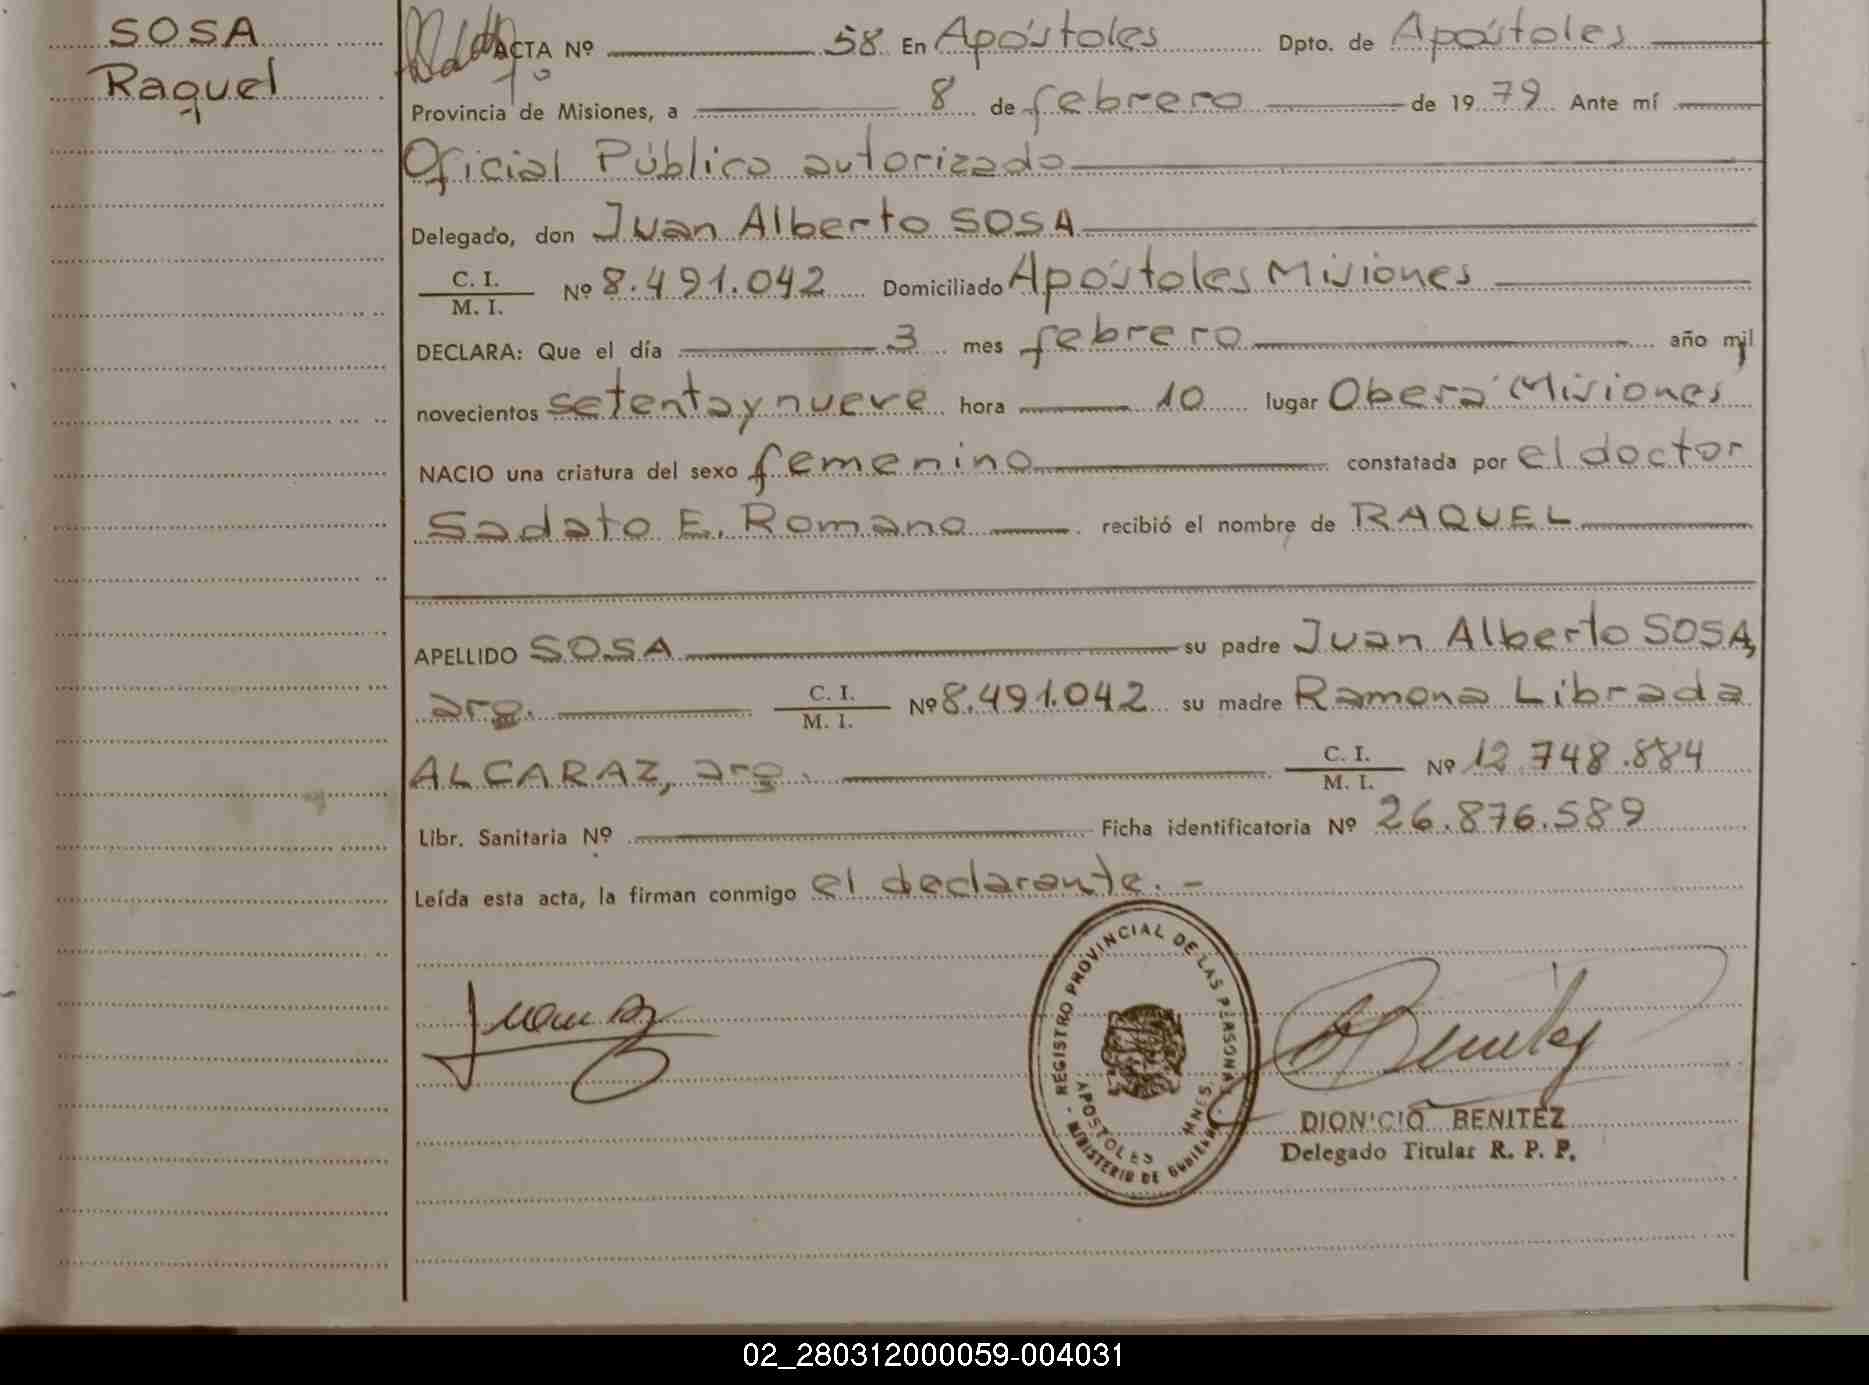 SOSA
Raquel
ACTA Nº 58 En Apóstoles Dpto. de Apóstoles
Provincia de Misiones, a 8 de febrero de 1979 Ante mí
Oficial Público autorizado
Delegado, don Juan Alberto SOSA
C. I.
M. I. Nº 8.491.042 Domiciliado Apóstoles Misiones
DECLARA: Que el día 3 mes febrero año mil
novecientos setenta y nueve hora 10 lugar Oberá Misiones
NACIO una criatura del sexo femenino constatada por el doctor
Sadato E. Romano recibió el nombre de RAQUEL
APELLIDO SOSA su padre Juan Alberto SOSA,
arg. C. I.
M. I. Nº 8.491.042 su madre Ramona Librada
ALCARAZ, arg. C. I.
M. I. Nº 12.748.884
Libr. Sanitaria Nº Ficha identificatoria Nº 26.876.589
Leída esta acta, la firman conmigo el declarante. -
REGISTRO PROVINCIAL DE LAS PERSONAS
APOSTOLES MNES.
MINISTERIO DE GOBIERNO
DIONICIO BENITEZ
Delegado Titular R. P. P.
02_280312000059-004031